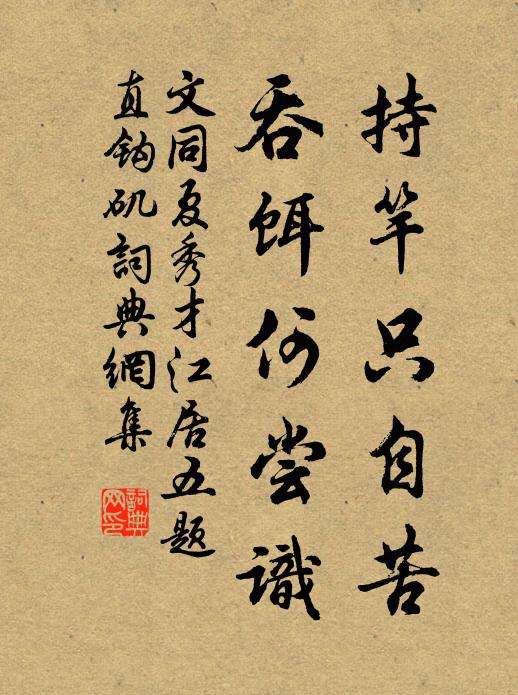 持竿只自苦
吞饵何尝識
文同夏秀才江居五题
直钩矶詞典網集
詞典网印